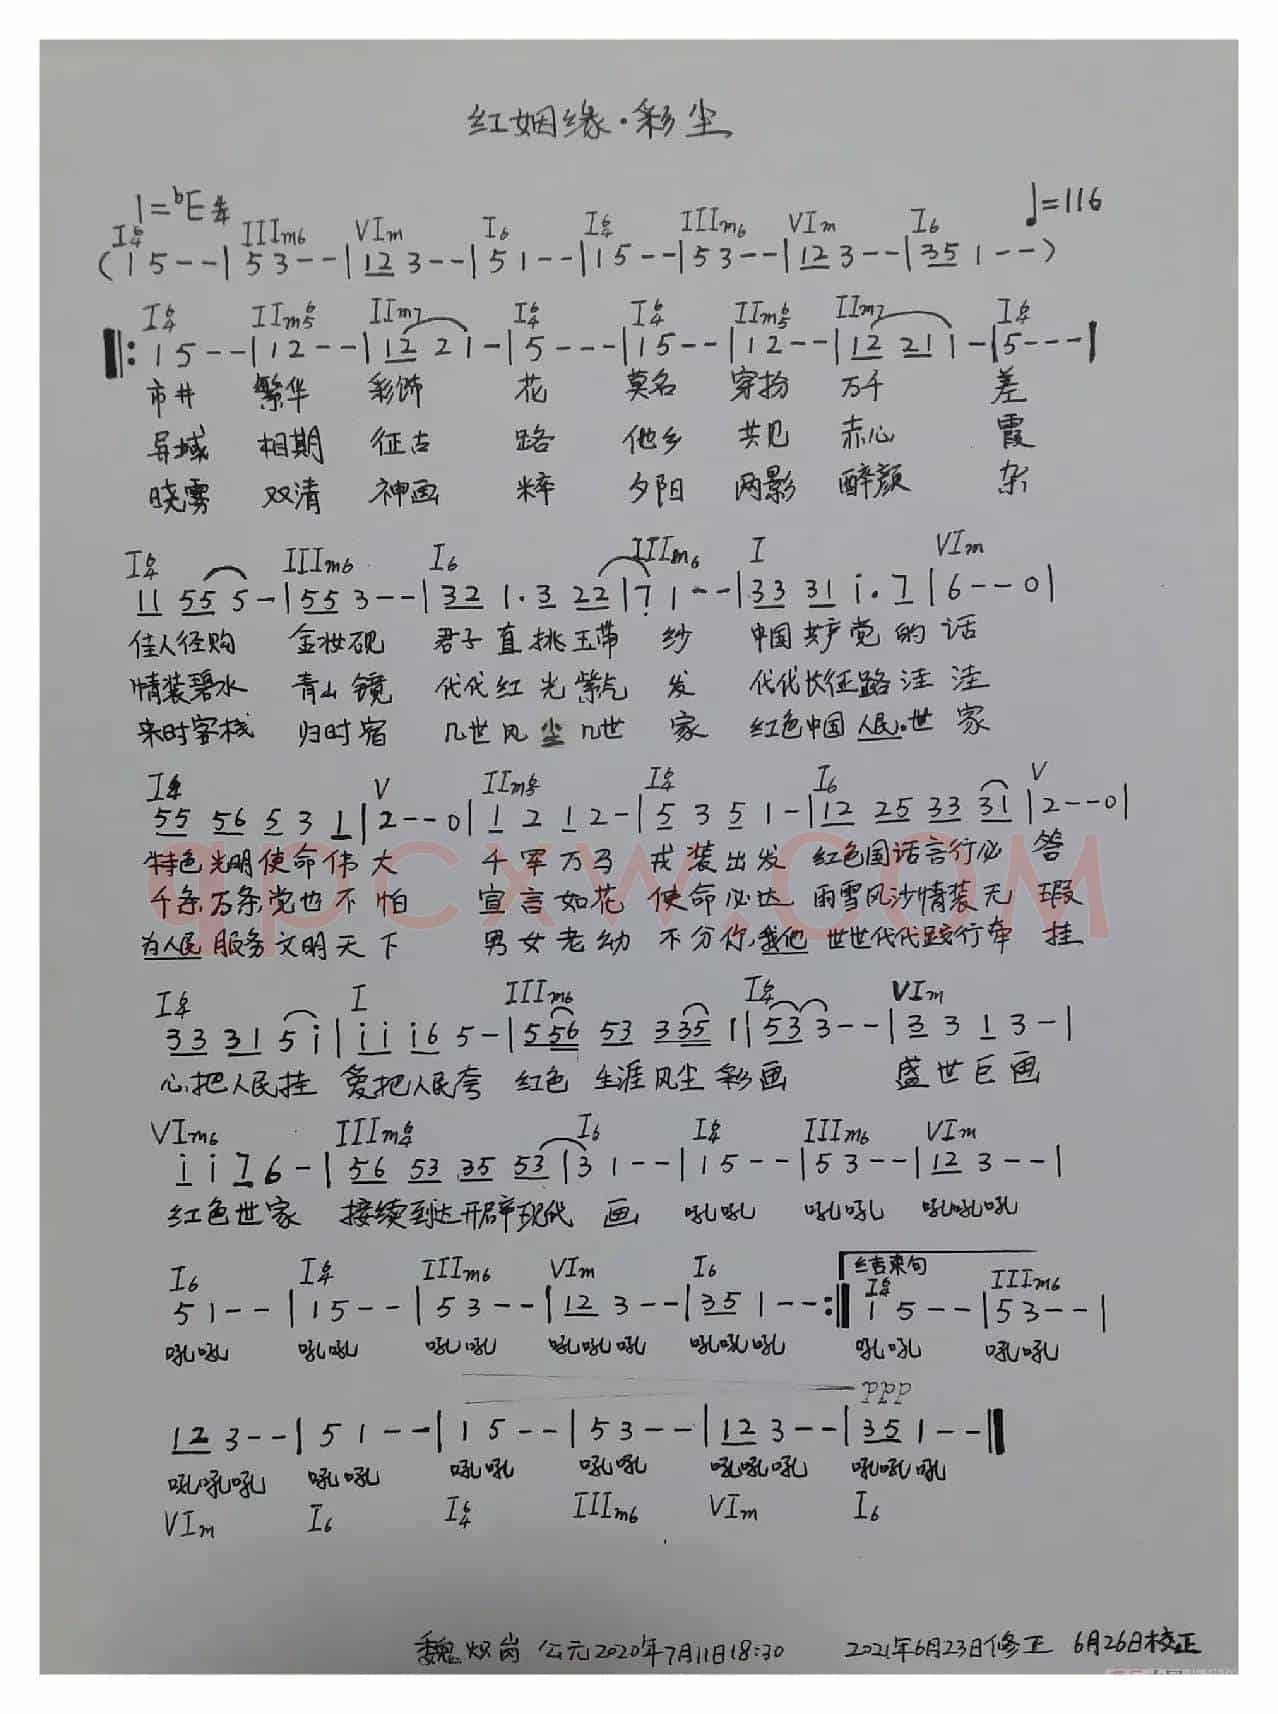 红姻缘·彩尘
1=ᵇE ♩=116
I6/4 IIIm6 VIm I6 I6/4 IIIm6 VIm I6
(1 5--|5 3--|12 3--|5 1--|1 5--|5 3--|12 3--|35 1--)
I6/4 IIm6/5 IIm7 I6/4 I6/4 IIm6/5 IIm7 I6/4
‖:1 5--|12--|12 21-|5---|15--|12--|12 21 1-|5---|
市井 繁华 彩饰 花 莫名 穿扮 万千 差
异域 相期 征古 路 他乡 共见 赤心 霞
晓雾 双清 神画 粹 夕阳 两影 醉颜 杂
I6/4 IIIm6 I6 IIIm6 I VIm
11 55 5-|55 3--|32 1.3 22|7 1--|33 31 i.7|6--0|
佳人径购 金妆砚 君子直挑玉带 纱 中国共产党的话
情装碧水 青山镜 代代红光紫气 发 代代长征路洼洼
来时客栈 归时宿 几世风尘几世 家 红色中国人民.世家
I6/4 V IIm6/5 I6/4 I6 V
55 56 5 3 1|2--0|1 2 1 2-|5 3 5 1-|12 25 33 31|2--0|
特色光明使命伟大 千军万马 戎装出发 红色国话言行必 答
千条万条党也不怕 宣言如花 使命必达 雨雪风沙情装无 瑕
为人民服务文明天下 男女老幼 不分你,我他 世世代代践行牵 挂
I6/4 I IIIm6 I6/4 VIm
33 31 5 i|ii i6 5-|556 53 335 1|53 3--|3 3 1 3-|
心把人民挂 爱把人民夸 红色 生涯风尘彩画 盛世巨画
VIm6 IIIm6/4 I6 I6/4 IIIm6 VIm
i i 7 6-|56 53 35 53|3 1--|1 5--|5 3--|12 3--|
红色世家 接续到达开辟现代 画 吼吼 吼吼 吼吼吼
I6 I6/4 IIIm6 VIm I6 结束句 I6/4 IIIm6
5 1--|1 5--|5 3--|12 3--|35 1--:‖1 5--|5 3--|
吼吼 吼吼 吼吼 吼吼吼 吼吼吼 吼吼 吼吼
ppp
12 3--|5 1--|1 5--|5 3--|12 3--|35 1--‖
吼吼吼 吼吼 吼吼 吼吼 吼吼吼 吼吼吼
VIm I6 I6/4 IIIm6 VIm I6
魏炽岗 公元2020年7月11日18:30 2021年6月23日修正 6月26日校正
qpcxw.com